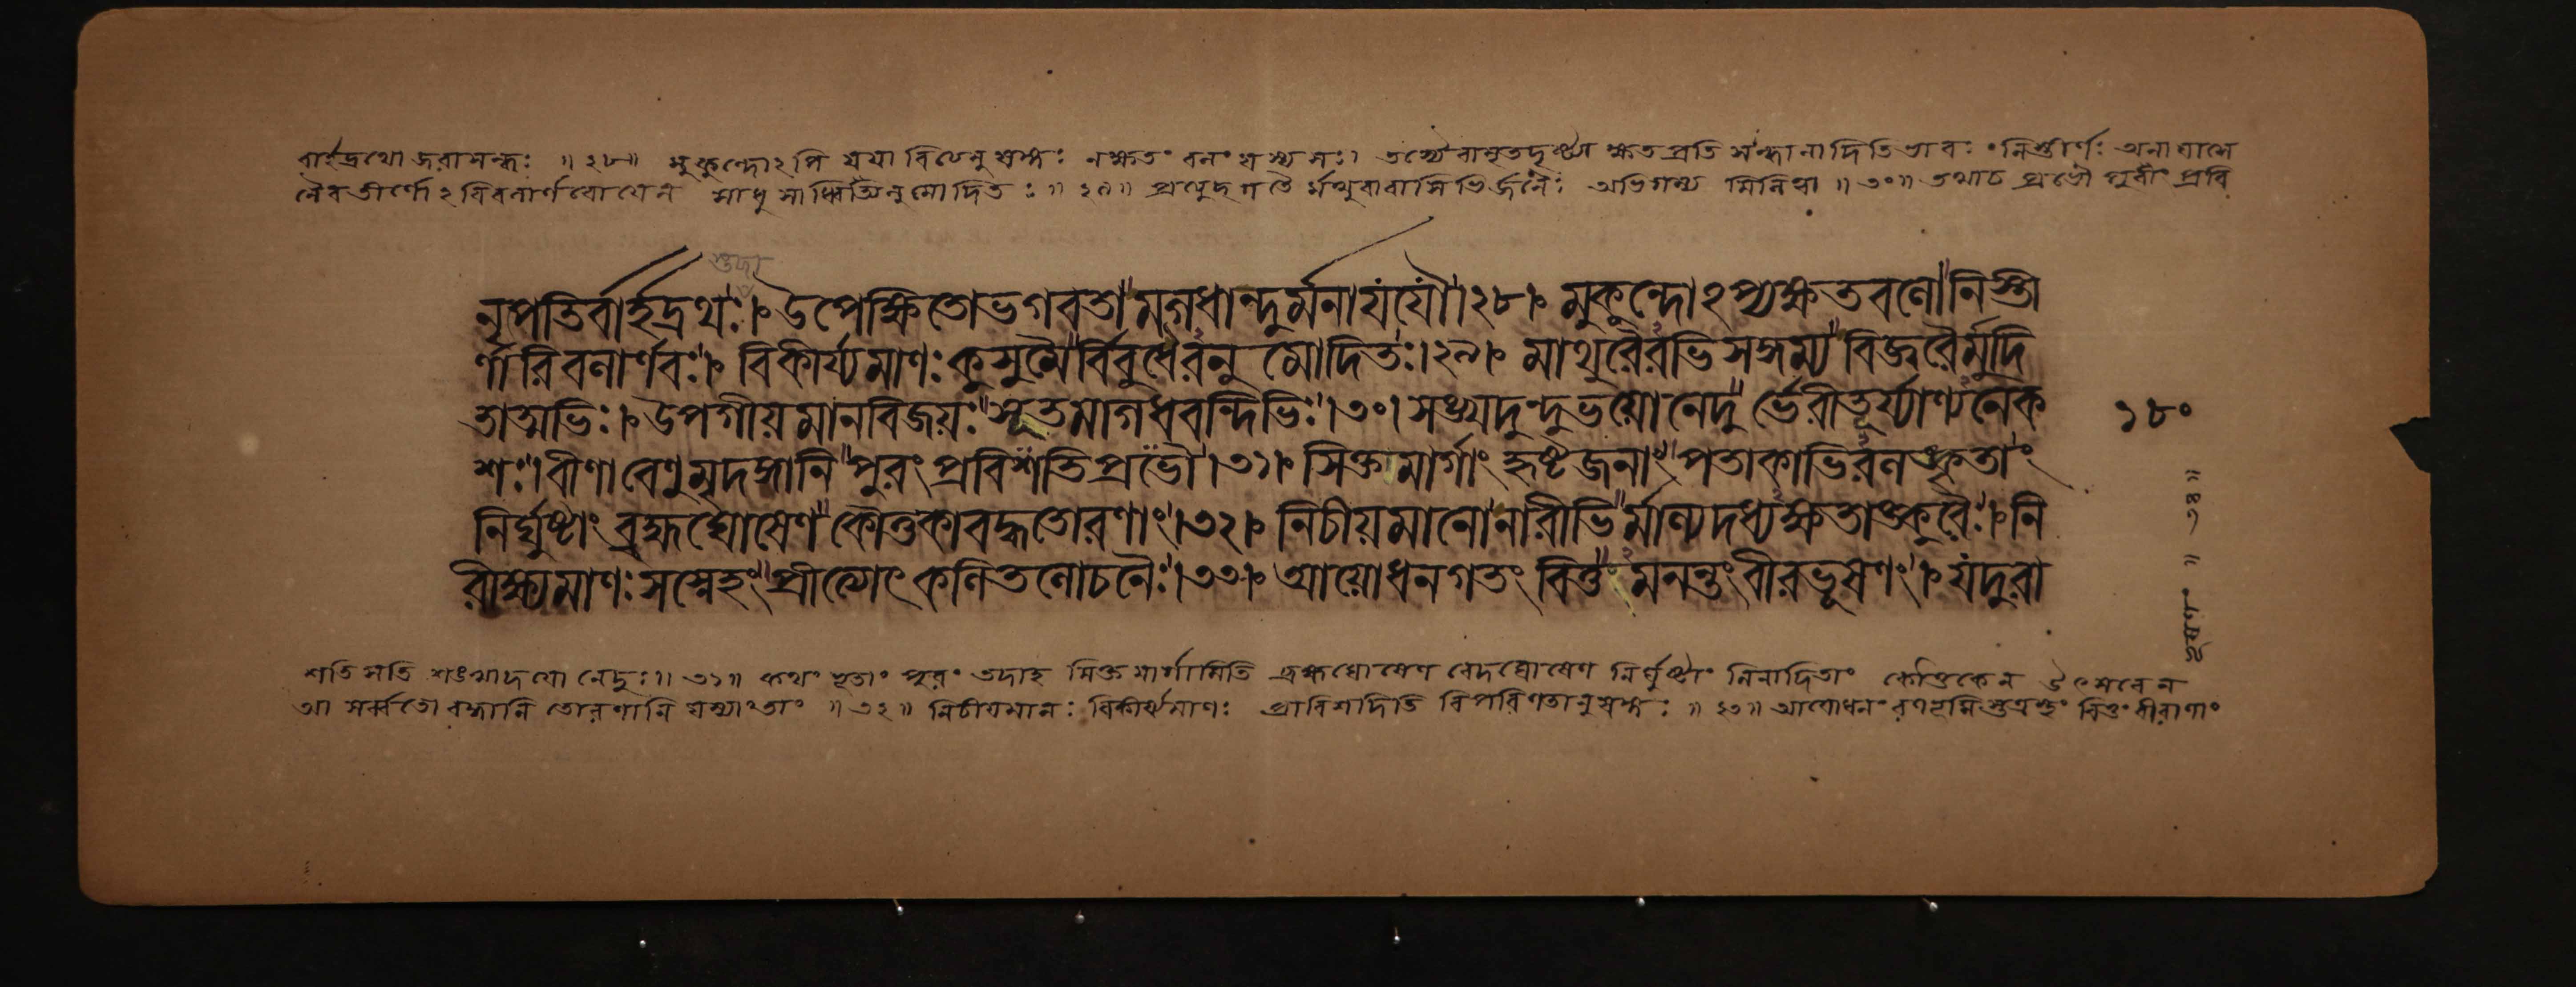 বার্হদ্রথো জরাসন্ধঃ ॥ ২৮॥ মুকুন্দোঽপি যযাবিত্যনুষঙ্গঃ নক্ষতং বলং যস্য সঃ। তস্যৈবামৃতদৃষ্ট্যা ক্ষতপ্রতিসন্ধানাদিতি ভাবঃ । নিস্তীর্ণঃ অনায়াসে
নৈব তীর্ণোঽরিবলার্ণবো যেন সাধুসাধ্বিত্যনুমোদিতঃ ॥ ২৯॥ প্রত্যুদ্গতৈর্মথুরাবাসিভির্জনৈঃ অভিগম্য মিলিত্বা ॥ ৩০॥ তথাচ প্রভৌ পুরীং প্রবি
নৃপতির্বার্হদ্রথঃ। উপেক্ষিতো ভগবতা মগধান্দুর্মনা যযৌ।২৮। মুকুন্দোঽপ্যক্ষতবলো নিস্তী
র্ণারিবলার্ণবঃ। বিকীর্য্যমাণঃ কুসুমৈর্বিবুধৈরনুমোদিতঃ।২৯। মাথুরৈরভিসঙ্গম্য বিজ্বরৈর্মুদি
তাত্মভিঃ। উপগীয়মানবিজয়ঃ সূতমাগধবন্দিভিঃ।৩০। সঙ্খদুন্দুভয়ো নেদুর্ভেরীতূর্য্যাণ্যনেক
শঃ। বীণাবেণুমৃদঙ্গানি পুরং প্রবিশতি প্রভৌ।৩১। সিক্তমার্গাং হৃষ্টজনাং পতাকাভিরলঙ্কৃতাং
নির্ঘুষ্টাং ব্রহ্মঘোষেণ কৌতুকাবদ্ধতোরণাং।৩২। নিচীয়মানো নারীভির্মাল্যদধ্যক্ষতাঙ্কুরৈঃ। নি
রীক্ষ্যমাণঃ সস্নেহং প্রীত্যোৎকলিতলোচনৈঃ।৩৩। আয়োধনগতং বিত্তমনন্তং বীরভূষণং। যদুরা
১৮০
শতি সতি শঙ্খাদয়ো নেদুঃ॥ ৩১॥ কথং ভূতাং পুরং তদাহ সিক্তমার্গামিতি ব্রহ্মঘোষেণ বেদঘোষেণ নির্ঘুষ্টাং নিনাদিতাং কৌতুকেন উৎসবেন
আ সর্ব্বতো বদ্ধানি তোরণানি যস্যাং তাং ॥ ৩২॥ নিচীয়মানঃ বিকীর্য্যমাণঃ প্রাবিশদিতি বিপরিণতানুষঙ্গঃ ॥ ৩৩॥ আয়োধনং রণভূমিস্তত্রস্থং বিত্তং বীরাণাং
ভূষণং ॥ ৩৪॥